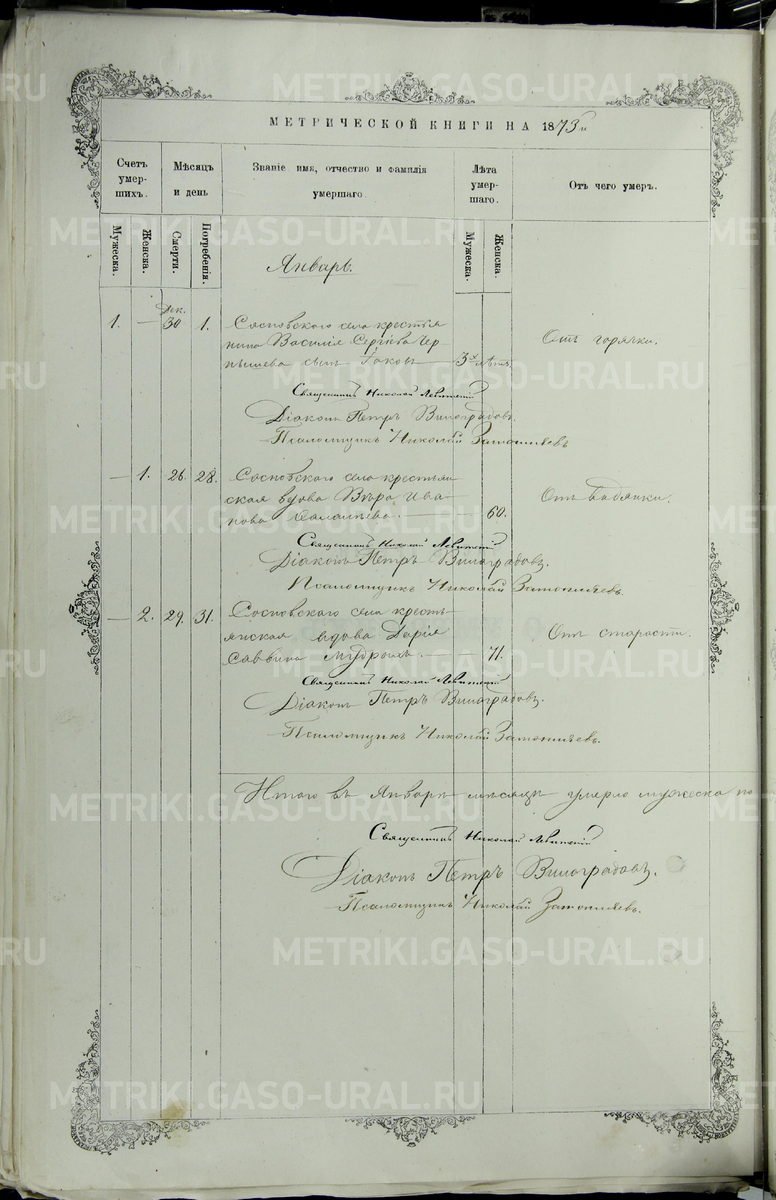 МЕТРИЧЕСКОЙ КНИГИ НА 1875
Счетъ умерших.
Мѣсяцъ и день
Званіе имя, отчество и фамилія умершаго
Лѣта умершаго.
Отъ чего умеръ.
Мужеска.
Женска.
Смерти.
Погребенія.
Мужеска.
Женска.
Январь.
Дек.
1. — 30 1. Сосновскаго села крестья
нина Василія Сергѣева Чер
нышева сынъ Іаковъ — 3хъ лѣтъ
Отъ горячки.
Священникъ Николай Левитскій
Діаконъ Петръ Виноградовъ.
Псаломщикъ Николай Затопляевъ
— 1. 26. 28. Сосновскаго села крестьян
ская вдова Вѣра Ива
нова 60.
Отъ водянки.
Священникъ Николай Левитскій
Діаконъ Петръ Виноградовъ.
Псаломщикъ Николай Затопляевъ.
— 2. 29. 31. Сосновскаго села кресть
янская вдова Дарія
Саввина 71.
Отъ старости.
Священникъ Николай Левитскій
Діаконъ Петръ Виноградовъ.
Псаломщикъ Николай Затопляевъ.
Итого въ Январѣ мѣсяцѣ умерло мужеска по
Священникъ Николай Левитскій
Діаконъ Петръ Виноградовъ.
Псаломщикъ Николай Затопляевъ.
METRIKI.GASO-URAL.RU